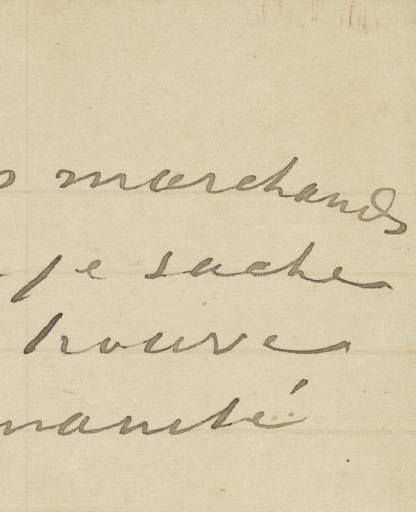 marchands
je sache
trouve
manité